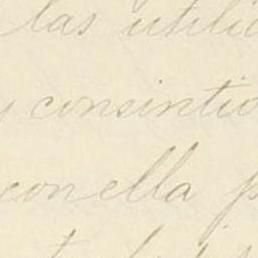 las utili
y consintio
con ella p